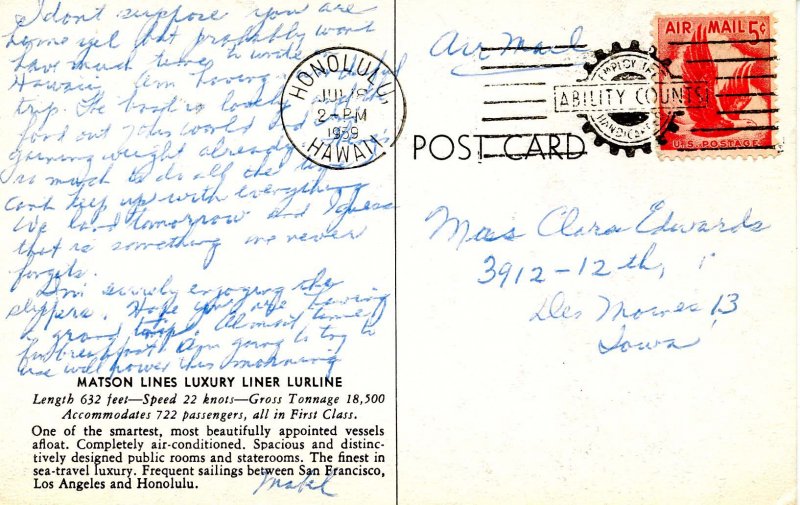 I dont suppose you are
home yet but probably wont
have much time to write in
Hawaii. Am having a
trip. The boat is lovely and the
food out this world and
gaining weight already
so much to do all the time
Cant keep up with everything
We land tomorrow and I guess
that is something one never
forgets.
Am surely enjoying the
slippers. Hope you are having
a grand trip. Almost time
for breakfast. Am going to try to
use will power this morning
MATSON LINES LUXURY LINER LURLINE
Length 632 feet—Speed 22 knots—Gross Tonnage 18,500
Accommodates 722 passengers, all in First Class.
One of the smartest, most beautifully appointed vessels
afloat. Completely air-conditioned. Spacious and distinc-
tively designed public rooms and staterooms. The finest in
sea-travel luxury. Frequent sailings between San Francisco,
Los Angeles and Honolulu.
Mabel
HONOLULU,
JUL 8
2-PM
1959
HAWAII
Air Mail
EMPLOY THE
ABILITY COUNTS
HANDICAPPED
AIR MAIL 5¢
U.S. POSTAGE
POST CARD
Miss Clara Edwards
3912-12th,
Des Moines 13
Iowa